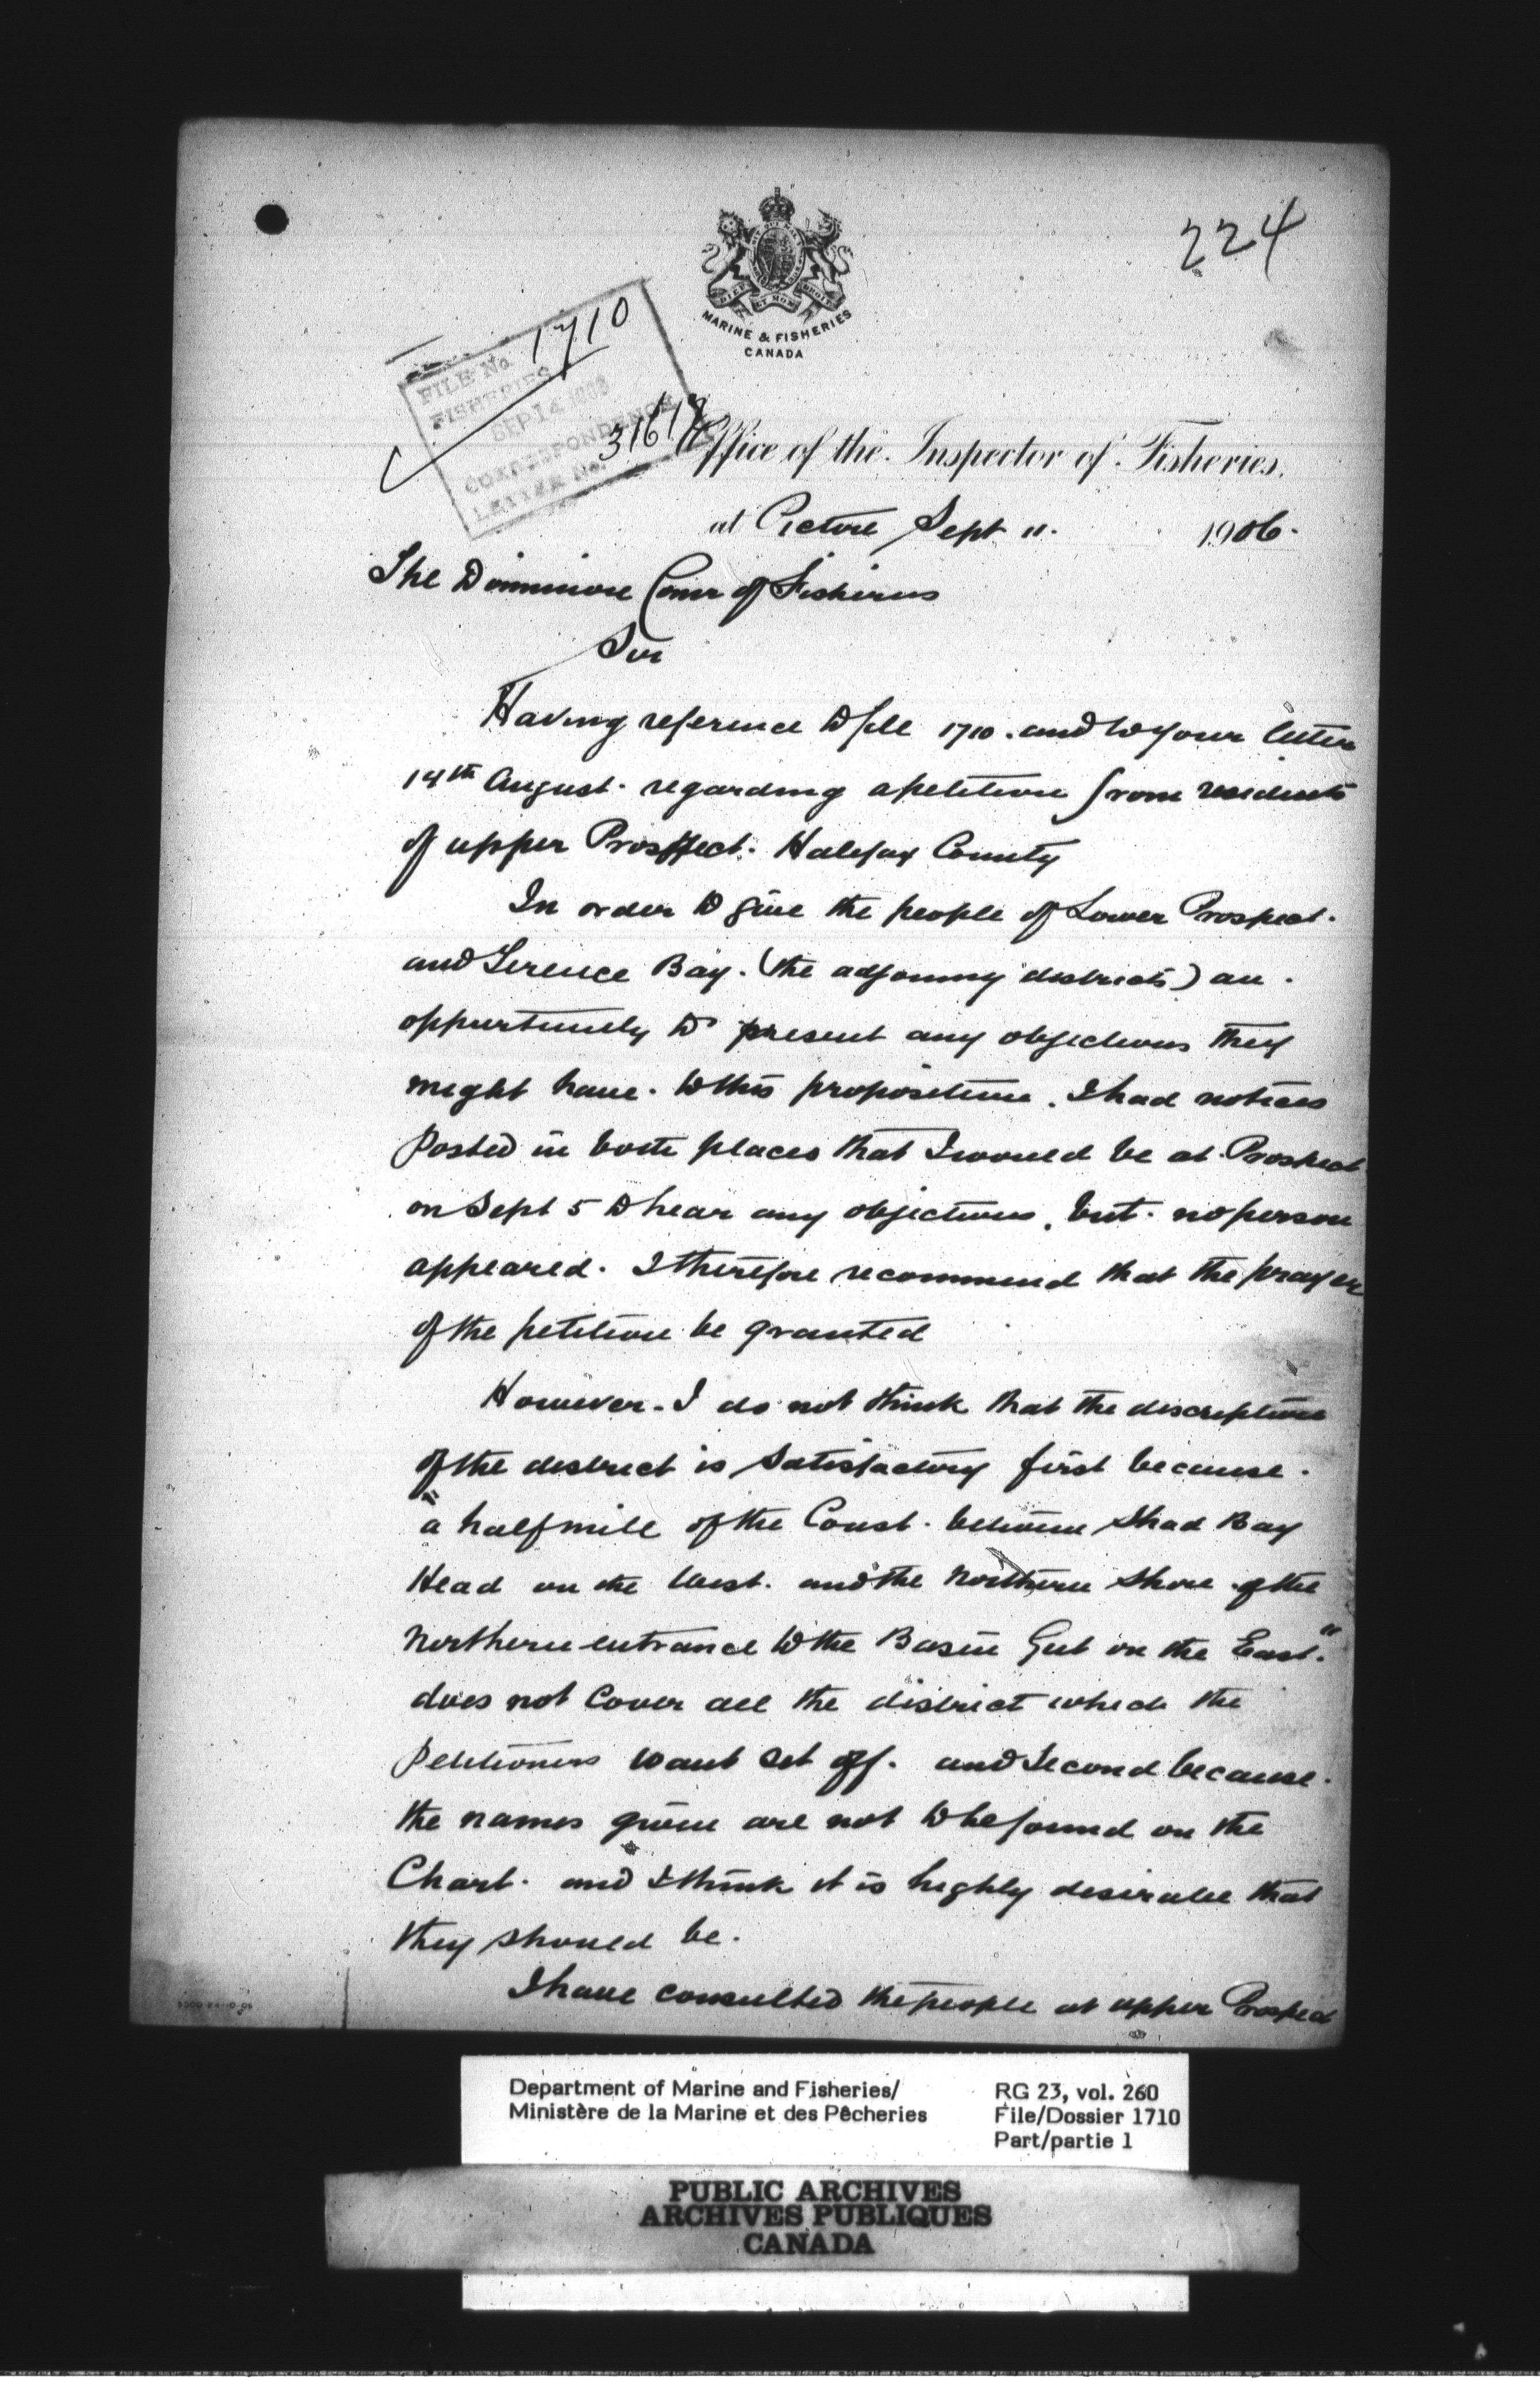 224
DIEU ET MON DROIT
MARINE & FISHERIES
CANADA
FILE No. 1710
FISHERIES
SEP 14 1906
CORRESPONDENCE
LETTER No. 31617
Office of the Inspector of Fisheries.
at Pictou Sept 11. 1906.
The Dominion Comr of Fisheries
Sir
Having reference to file 1710. and to your letter
14th August. regarding a petition from residents
of upper Prospect. Halifax County
In order to give the people of Lower Prospect.
and Terence Bay. (the adjoining districts) an.
oppurtunity to present any objections they
might have. to this proposition. I had notices
Posted in both places that I would be at Prospect
on Sept 5 to hear any objections, but. no person
appeared. I therefore recommend that the prayer
of the petition be granted
However. I do not think that the discription
of the district is Satisfactory first because.
"a half mile of the Coast. between Shad Bay
Head on the West. and the Northern Shore of the
Northern entrance to the Basin Gut on the East."
does not Cover all the district which the
Petitioners want Set off. and Second because.
the names given are not to be found on the
Chart. and I think it is highly desirable that
they should be.
I have consulted the people at upper Prospect
5000-24-10-05
Department of Marine and Fisheries/
Ministère de la Marine et des Pêcheries
RG 23, vol. 260
File/Dossier 1710
Part/partie 1
PUBLIC ARCHIVES
ARCHIVES PUBLIQUES
CANADA